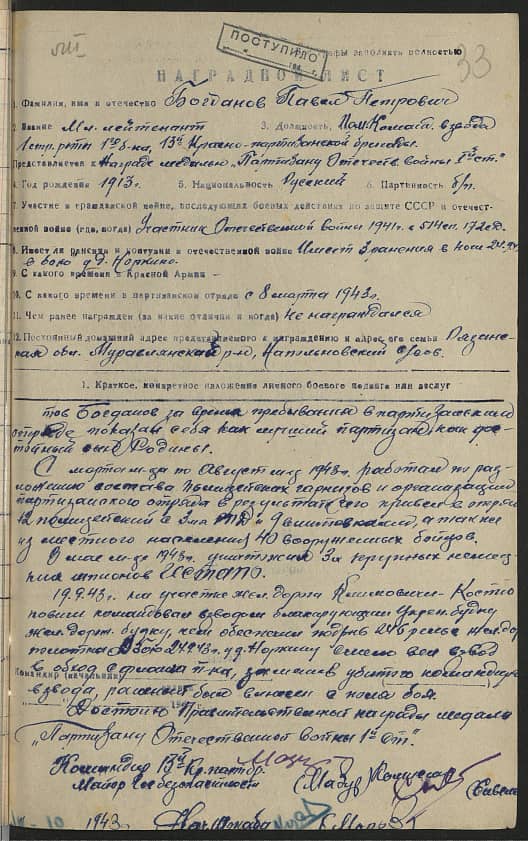 ПОСТУПИЛО
33
графы заполнять полностью
НАГРАДНОЙ ЛИСТ
1. Фамилия, имя и отчество Богданов Павел Петрович
2. Звание Мл. лейтенант 3. Должность, Пом. Команд. взвода
1го б-на, 13й Красно-партизанской бригады.
Представляется к Награде медалью "Партизану Отечеств. войны 1й ст."
4. Год рождения 1913г. 5. Национальность Русский 6. Партийность б/п.
7. Участие в гражданской войне, последующих боевых действиях по защите СССР и отечест-
венной войне (где, когда) Участник Отечественной войны 1941г. с 514 сп. 172 сд.
8. Имеет ли ранения и контузии в отечественной войне Имеет 3 ранения в
в бою у д. Норкино.
9. С какого времени в Красной Армии -
10. С какого времени в партизанском отряде с 8 марта 1943г.
11. Чем ранее награжден (за какие отличия и когда) Не награждался
12. Постоянный домашний адрес представляемого к награждению и адрес его семьи Рязанс-
кая обл. Муравлянский р-н, с/сов.
1. Краткое, конкретное изложение личного боевого подвига или заслуг
тов Богданов за время пребывания в партизанском
отряде показал себя как лучший партизан, как дос-
тойный сын Родины.
С марта м-ца по Август м-ц 1943г. работал по раз-
ложению состава полицейских гарнизов и организации
партизанского отряда в результате чего привел в отряд
12 полицейских с и 9 винтовками, а также
из местного населения 40 вооруженных бойцов.
В мае м-це 1943г. уничтожил 3х крупных немец-
ких шпионов
19.9.43г. на участке жел. дороги Климовичи - Костю
повичи командовал взводом блокирующим укреп. будку
жел. дорж. будку, чем обеспечил подрыв 246 рельс жел. дор
полотна. В бою 24.9.43г. у д. Норкино смело вел взвод
в обход с фланга пр-ка, заменив убитого командира
Командир (начальник)
взвода, раненый был вынесен с поля боя.
Достоин Правительственной награды медали
"Партизану Отечественной войны 1й ст."
Командир 13й Кр. парт. бр.
Майор Госбезопасности (Мазур) Комиссар
1943г. Нач. Штаба